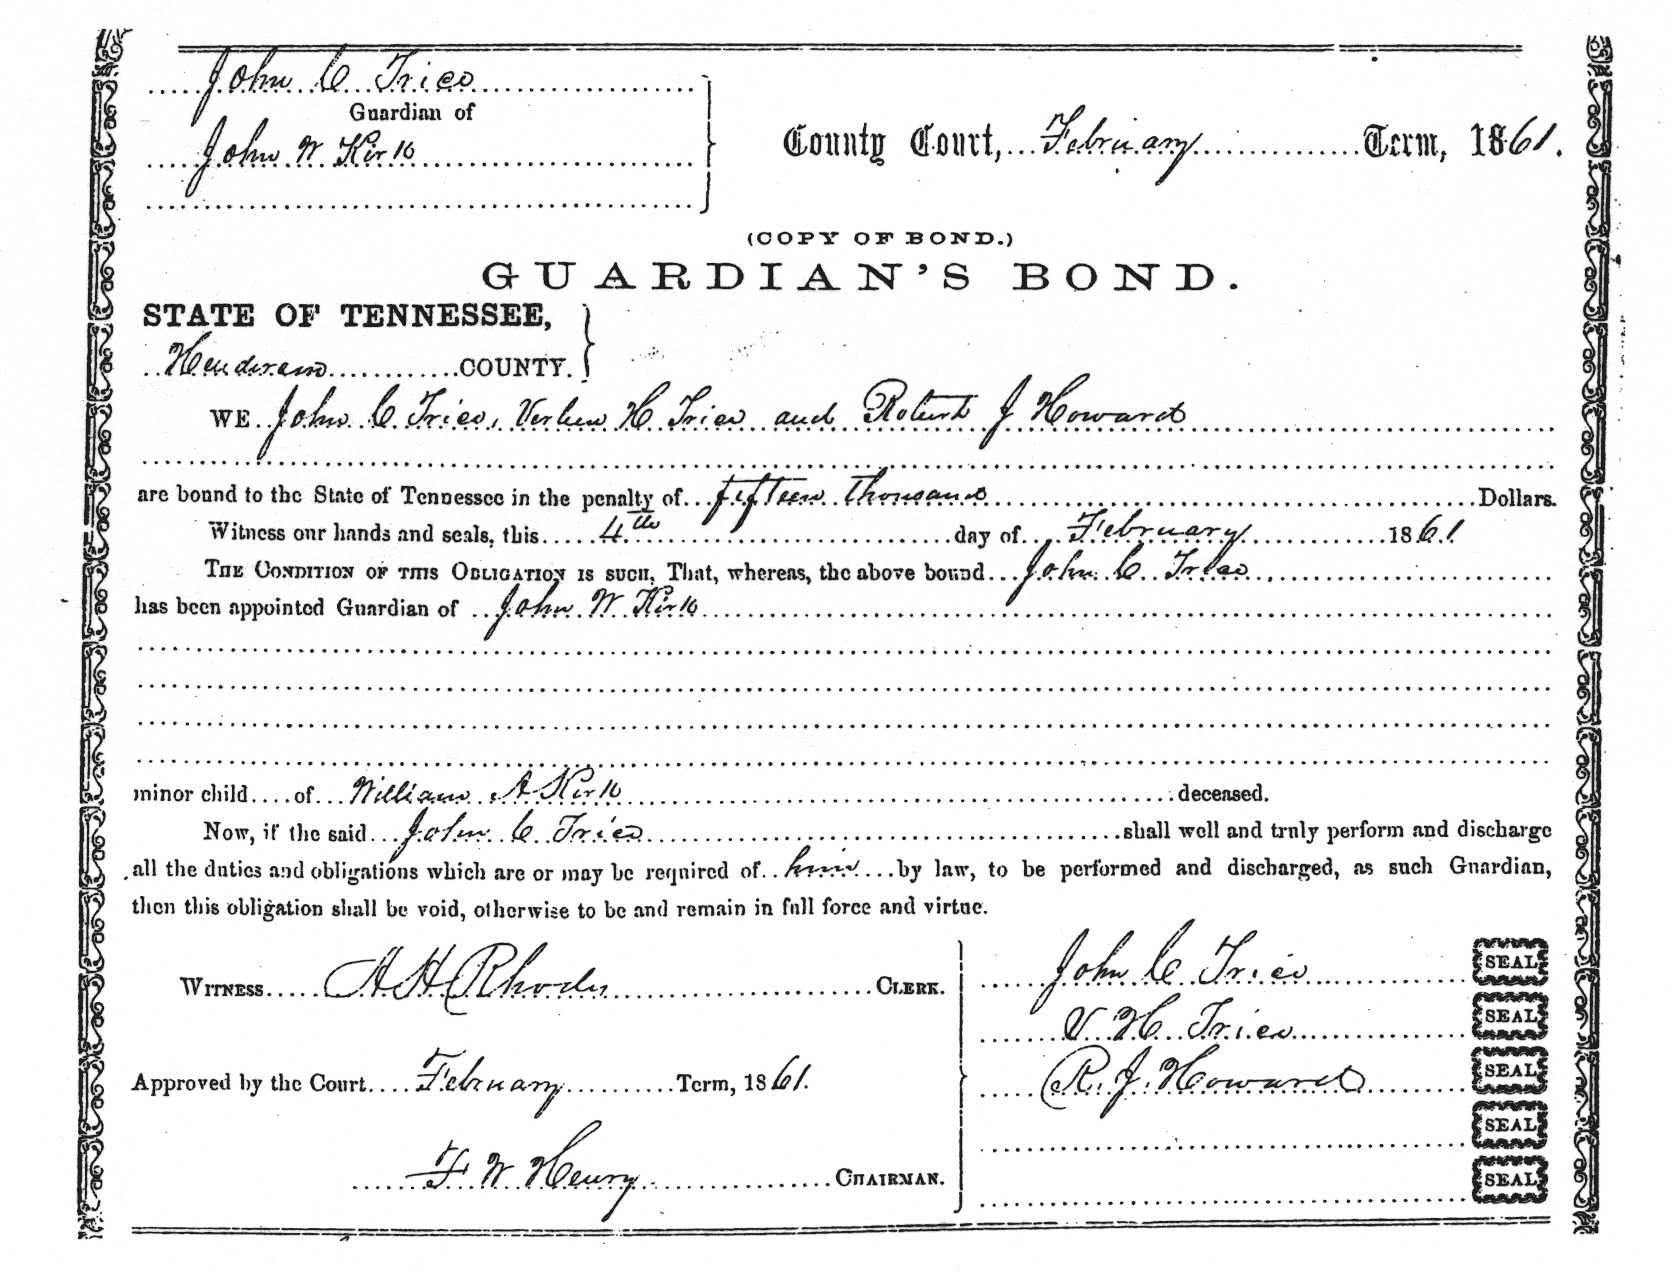 John C Trice
Guardian of
John W Kirk
County Court, February Term, 1861.
(COPY OF BOND.)
GUARDIAN'S BOND.
STATE OF TENNESSEE,
Henderson COUNTY.
WE John C Trice, Verlen H Trice and Robert J Howard
are bound to the State of Tennessee in the penalty of fifteen thousand Dollars.
Witness our hands and seals, this 4th day of February 1861
THE CONDITION OF THIS OBLIGATION IS SUCH, That, whereas, the above bound John C Trice
has been appointed Guardian of John W Kirk
minor child of William A Kirk deceased.
Now, if the said John C Trice shall well and truly perform and discharge
all the duties and obligations which are or may be required of him by law, to be performed and discharged, as such Guardian,
then this obligation shall be void, otherwise to be and remain in full force and virtue.
WITNESS A H Rhodes CLERK.
John C Trice SEAL
V H Trice SEAL
R. J. Howard SEAL
Approved by the Court February Term, 1861.
SEAL
F W Henry CHAIRMAN.
SEAL